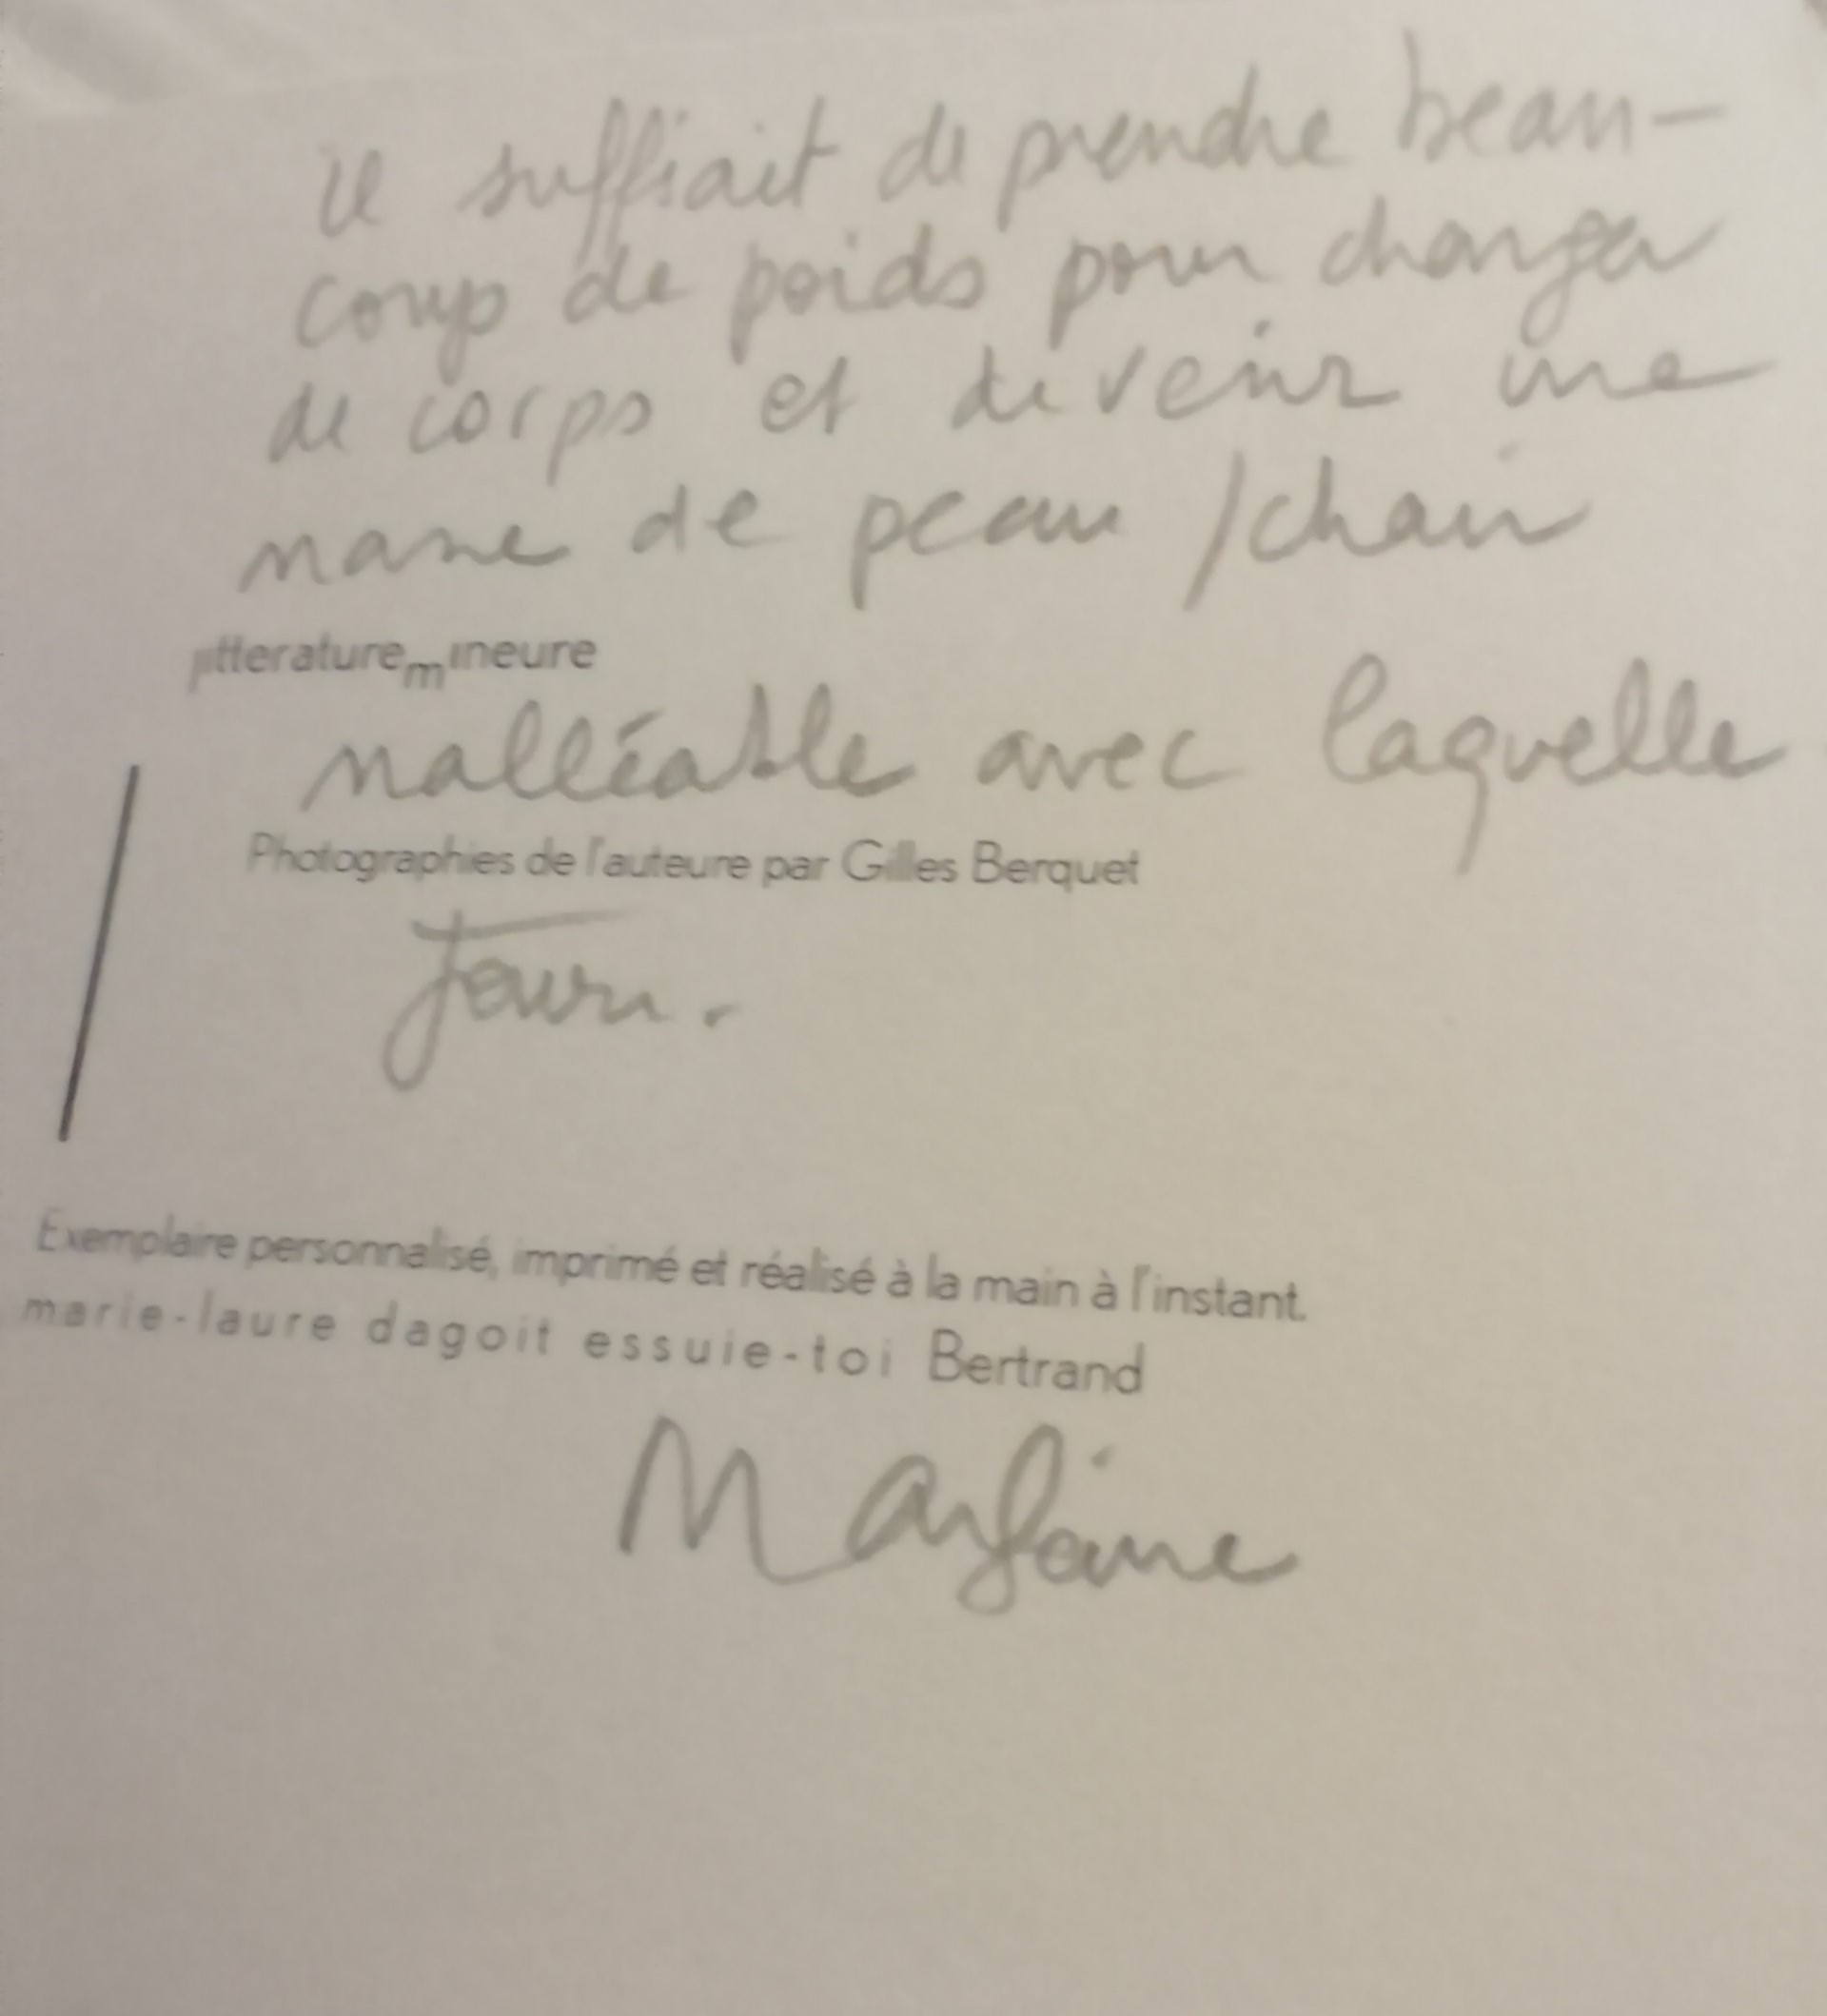 il suffiait de prendre beau-
coup de poids pour changer
de corps et devenir une
masse de peau / chair
litterature mineure
malléable avec laquelle
Photographies de l'auteure par Gilles Berquet
jouer.
Exemplaire personnalisé, imprimé et réalisé à la main à l'instant.
marie-laure dagoit essuie-toi Bertrand